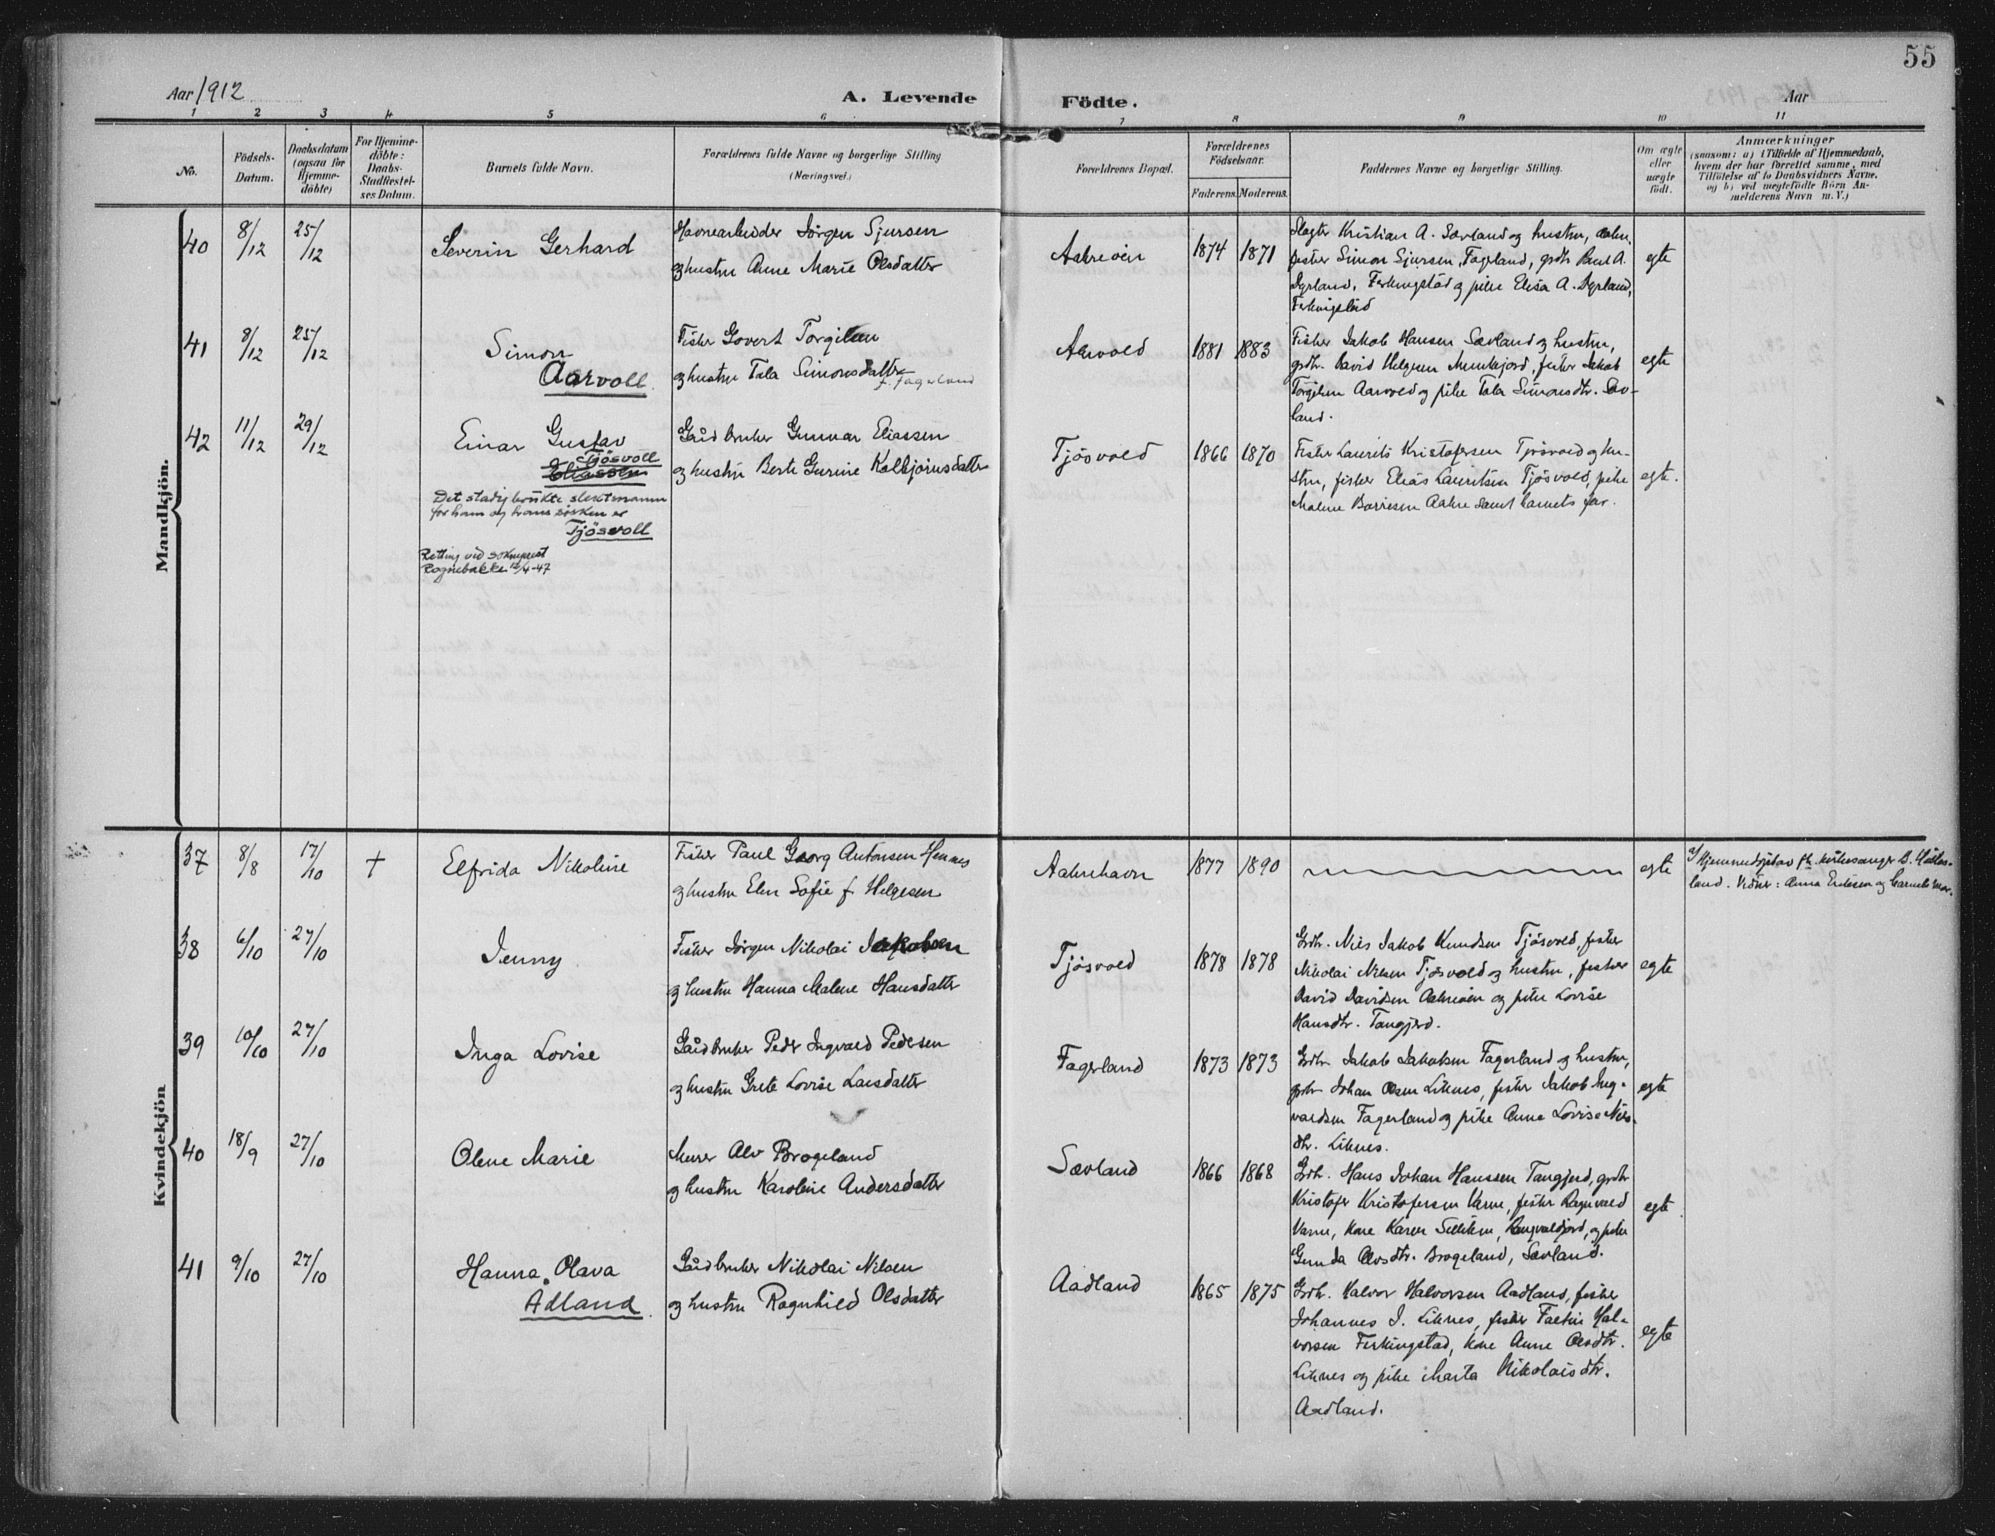 55
Aar 1912
A. Levende
Födte.
Aar
1 2 3 4 5 6 7 8 9 10 11
No.
Födsels-
Datum.
Daabsdatum
(ogsaa for
Hjemme-
döbte)
For Hjemme-
döbte:
Daabs-
Stadfæstel-
ses Datum.
Barnets fulde Navn.
Forældrenes fulde Navne og borgerlige Stilling
(Næringsvei.)
Forældrenes Bopæl.
Forældrenes
Födselsaar.
Faderens. Moderens.
Faddernes Navne og borgerlige Stilling.
Om ægte
eller
uægte
født.
Anmærkninger
(saasom: a) i Tilfælde af Hjemmedaab,
hvem der har forrettet samme, med
Tilföielse af to Daabsvidners Navne,
og b) ved uægtefödte Börn An-
melderens Navn m. V.)
Mandkjön.
40 8/12 25/12
Severin Gerhard
Havnearbeider Jörgen Sjursen
og hustru Anne Marie Olsdatter
Aakreøen
1874 1871
Slagter Kristian A. Sævland og hustru, Aakre,
fisker Simon Sjursen, Fagerland, grdbr. Paul A.
Dyrland, Ferkingstad og pike Elisa A. Dyrland,
Ferkingstad
egte
41 8/12 25/12
Simon
Aarvoll
Fisker Govert Torgilsen
og hustru Tala Simonsdatter
f. Fagerland
1881 1883
Fisker Jakob Hansen Sævland og hustru,
grdbr. David Helgesen Munkejord, fisker Jakob
Torgilsen Aarvold og pike Tala Simonsdtr. Sæv-
land.
egte
42 11/12 29/12
Einar Gustav
Tjösvoll
Eliassen
Det stadig brukte slektsnamn
for ham og hans søsken er
Tjösvoll
Retting ved sokneprest
Rognebakke 12/4-47
Gårdbruker Gunnar Eliassen
og hustru Berte Gurine Kolbjörnsdatter
Tjösvold
1866 1870
Fisker Laurits Kristofersen Tjösvold og hu-
stru, fisker Elias Lauritsen Tjösvold, pike
Malene Aakre samt barnets far.
egte.
Kvindekjön
37 8/8 17/10 +
Elfrida Nikoline
Fisker Paul Georg Antonsen Hemnes
og hustru Elen Sofie f. Helgesen
Aakrehavn
1877 1890
egte
Hjemmedöpt av kirkesanger B. Hådlas-
land. Vidner: Anna Eriksen og barnets mor.
38 6/10 27/10
Jenny
Fisker Jörgen Nikolai Jakobsen
og hustru Hanna Malene Hansdatter
Tjösvold
1878 1878
Grdbr. Niels Jakob Knudsen Tjösvold, fisker
Nikolai Nilsen Tjösvold og hustru, fisker
David Davidsen Aakreøen og pike Lovise
Hansdtr. Tangjerd.
egte
39 10/10 27/10
Inga Lovise
Gårdbruker Peder Ingvald Pedersen
og hustru Grete Lovise Larsdatter
Fagerland
1873 1873
Grdbr. Jakob Jakobsen Fagerland og hustru,
grdbr. Johan Olsen Liknes, fisker Jakob Ing-
valdsen Fagerland og pike Anna Lovise Niels-
dtr. Liknes.
egte
40 18/9 27/10
Olene Marie
Murer Alv Brogeland
og hustru Karoline Andersdatter
Sævland
1866 1868
Grdbr. Hans Johan Hanssen Tangjerd, grdbr.
Kristofer Kristofersen Varne, fisker Ragnvald
Varne, kone Karen Sillesen, og pike
Gunda Alvsdtr. Brogeland, Sævland.
egte
41 9/10 27/10
Hanna Olava
Adland.
Gårdbruker Nikolai Nilsen
og hustru Ragnhild Olsdatter
Aadland
1865 1875
Grdbr. Halvor Halvorsen Aadland, fisker
Johannes J. Liknes, fisker Hal-
vorsen Ferkingstad, kone Anne Olsdtr.
Liknes og pike Marta Nikolaisdtr.
Aadland.
egte